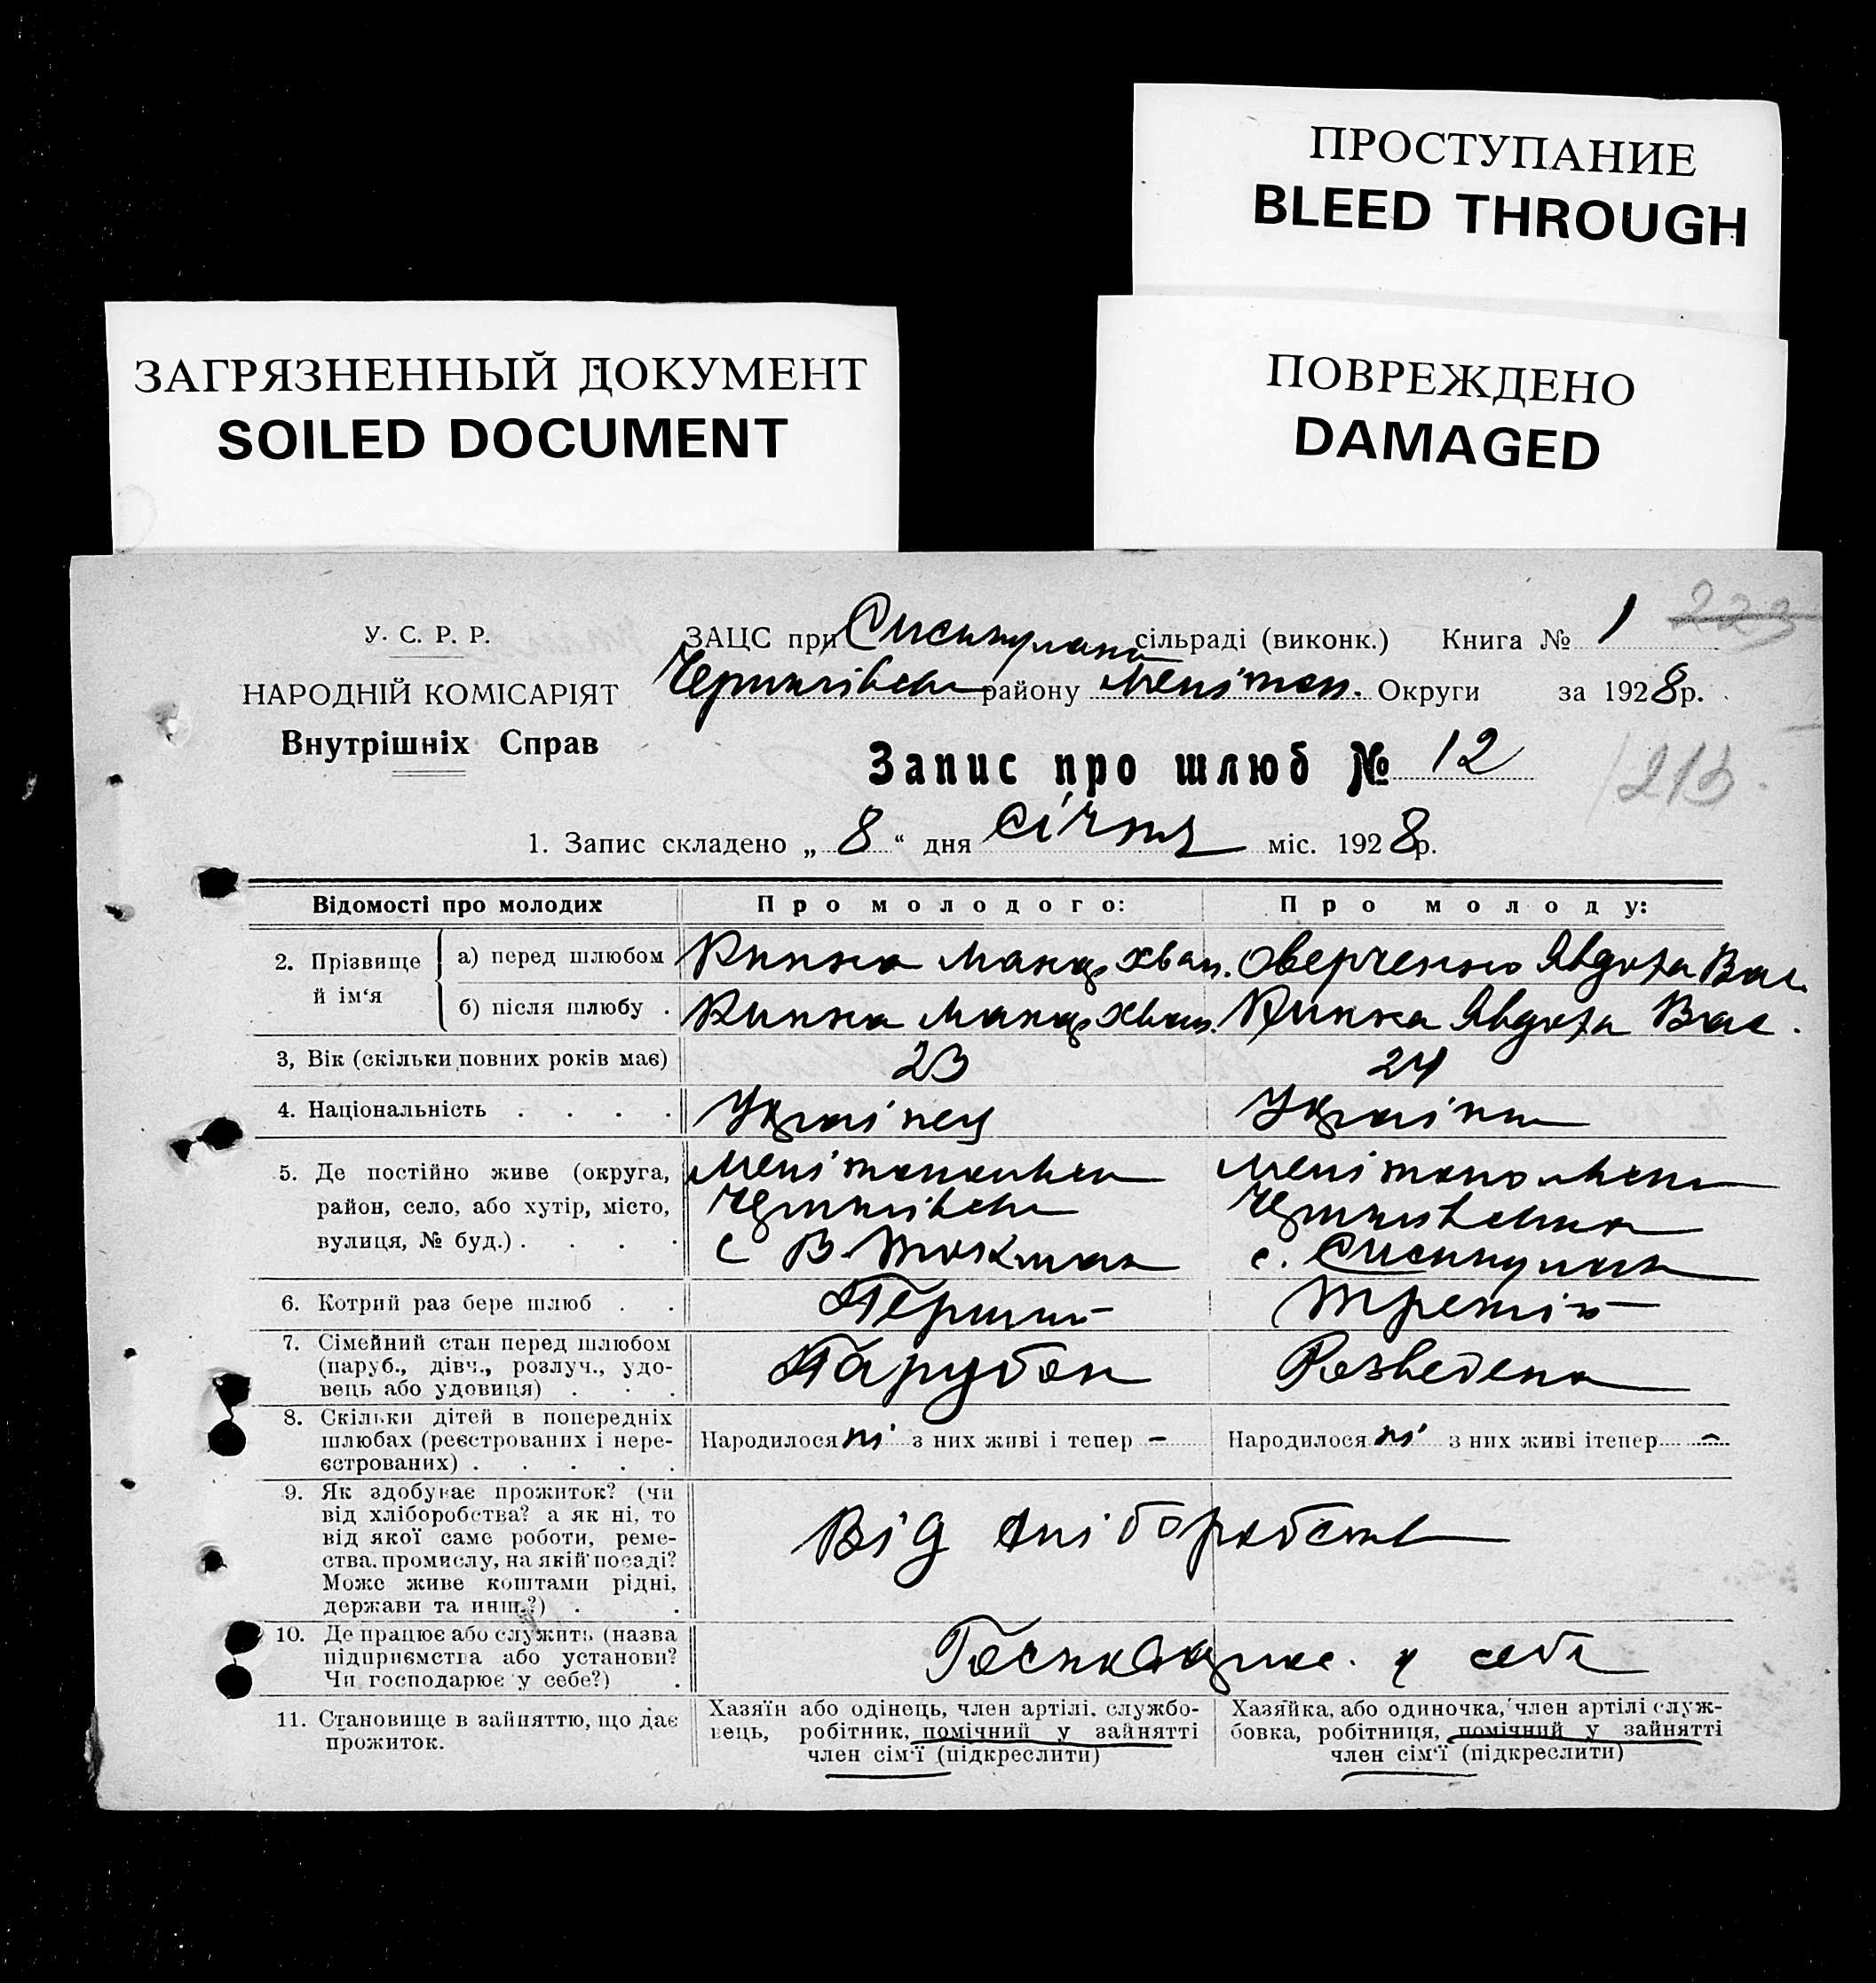 ПРОСТУПАНИЕ
BLEED THROUGH
ЗАГРЯЗНЕННЫЙ ДОКУМЕНТ
SOILED DOCUMENT
ПОВРЕЖДЕНО
DAMAGED
У. С. Р. Р.
НАРОДНІЙ КОМІСАРІЯТ
Внутрішніх Справ
ЗАЦС при сільраді (виконк.) Книга № 1 223
району Мелітоп. Округи за 1928 р.
Запис про шлюб № 12
1. Запис складено „ 8 “ дня січня міс. 1928 р.
Відомості про молодих
Про молодого:
Про молоду:
2. Прізвище й ім‘я
а) перед шлюбом
Явдоха Вас.
б) після шлюбу .
Явдоха Вас.
3, Вік (скільки повних років має)
23
24
4. Національність . . . .
Українец
Українк
5. Де постійно живе (округа,
район, село, або хутір, місто,
вулиця, № буд.) . . . .
с В. Токмак
с.
6. Котрий раз бере шлюб . .
Перший
Третій
7. Сімейний стан перед шлюбом
(паруб., дівч., розлуч., удо-
вець або удовиця) . . .
Парубок
Розведена
8. Скільки дітей в попередніх
шлюбах (реєстрованих і нере-
єстрованих) . . . . .
Народилося ні з них живі і тепер –
Народилося ні з них живі ітепер –
9. Як здобуває прожиток? (чи
від хліборобства? а як ні, то
від якої саме роботи, реме-
ства, промислу, на якій посаді?
Може живе коштами рідні,
держави та инш.?) . .
Від хліборобств
10. Де працює або служить (назва
підприємства або установи?
Чи господарює у себе?) .
у себе
11. Становище в зайняттю, що дає
прожиток.
Хазяїн або одінець, член артілі, службо-
вець, робітник, помічний у зайнятті
член сім‘ї (підкреслити)
Хазяйка, або одиночка, член артілі служ-
бовка, робітниця, помічний у зайнятті
член сім‘ї (підкреслити)